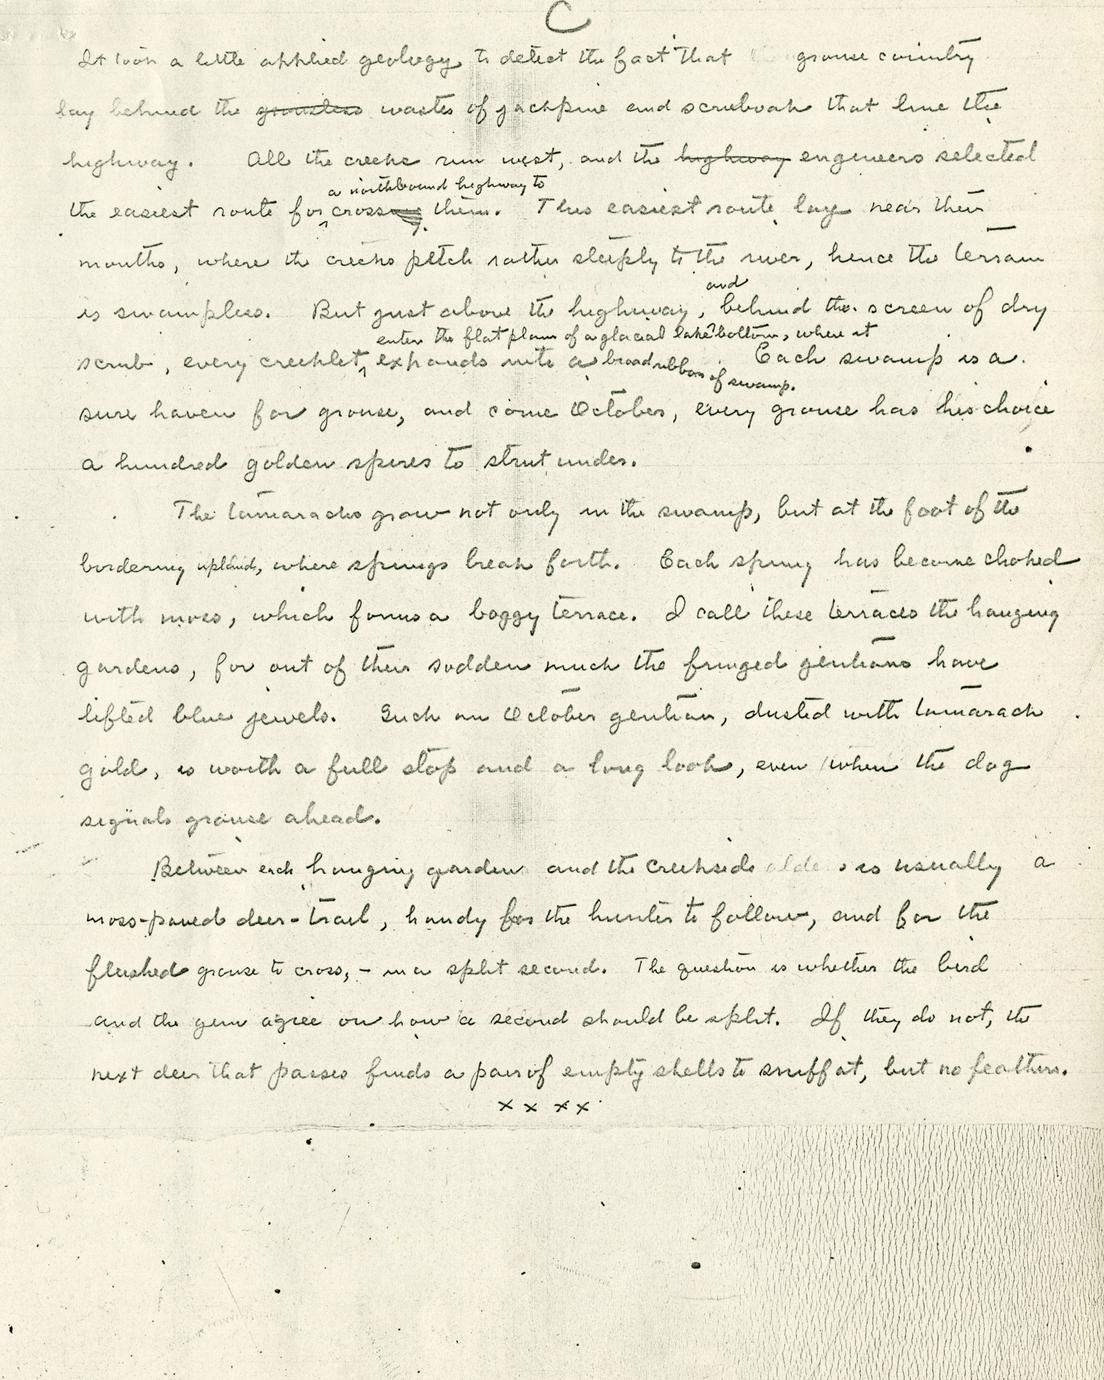 C
It took a little applied geology to detect the fact that grouse country
lay behind the grouseless wastes of jackpine and scruboak that line the
highway. All the creeks run west, and the highway engineers selected
a northbound highway to
the easiest route for crossing them. This easiest route lay near their
mouths, where the creeks pitch rather steeply to the river, hence the terrain
is swampless. But just above the highway, and behind the screen of dry
enter the flat plain of a glacial lake bottom, where it
scrub, every creeklet expands into a broad ribbon of swamp. Each swamp is a
sure haven for grouse, and come October, every grouse has his choice
a hundred golden spires to strut under.
The tamaracks grow not only in the swamp, but at the foot of the
bordering upland, where springs break forth. Each spring has become choked
with moss, which forms a boggy terrace. I call these terraces the hanging
gardens, for out of their sodden muck the fringed gentians have
lifted blue jewels. Such an October gentian, dusted with tamarack
gold, is worth a full stop and a long look, even when the dog
signals grouse ahead.
Between each hanging garden and the creekside is usually a
moss-paved deer-trail, handy for the hunter to follow, and for the
flushed grouse to cross, - in a split second. The question is whether the bird
and the gun agree on how a second should be split. If they do not, the
next deer that passes finds a pair of empty shells to sniff at, but no feathers.
x x x x